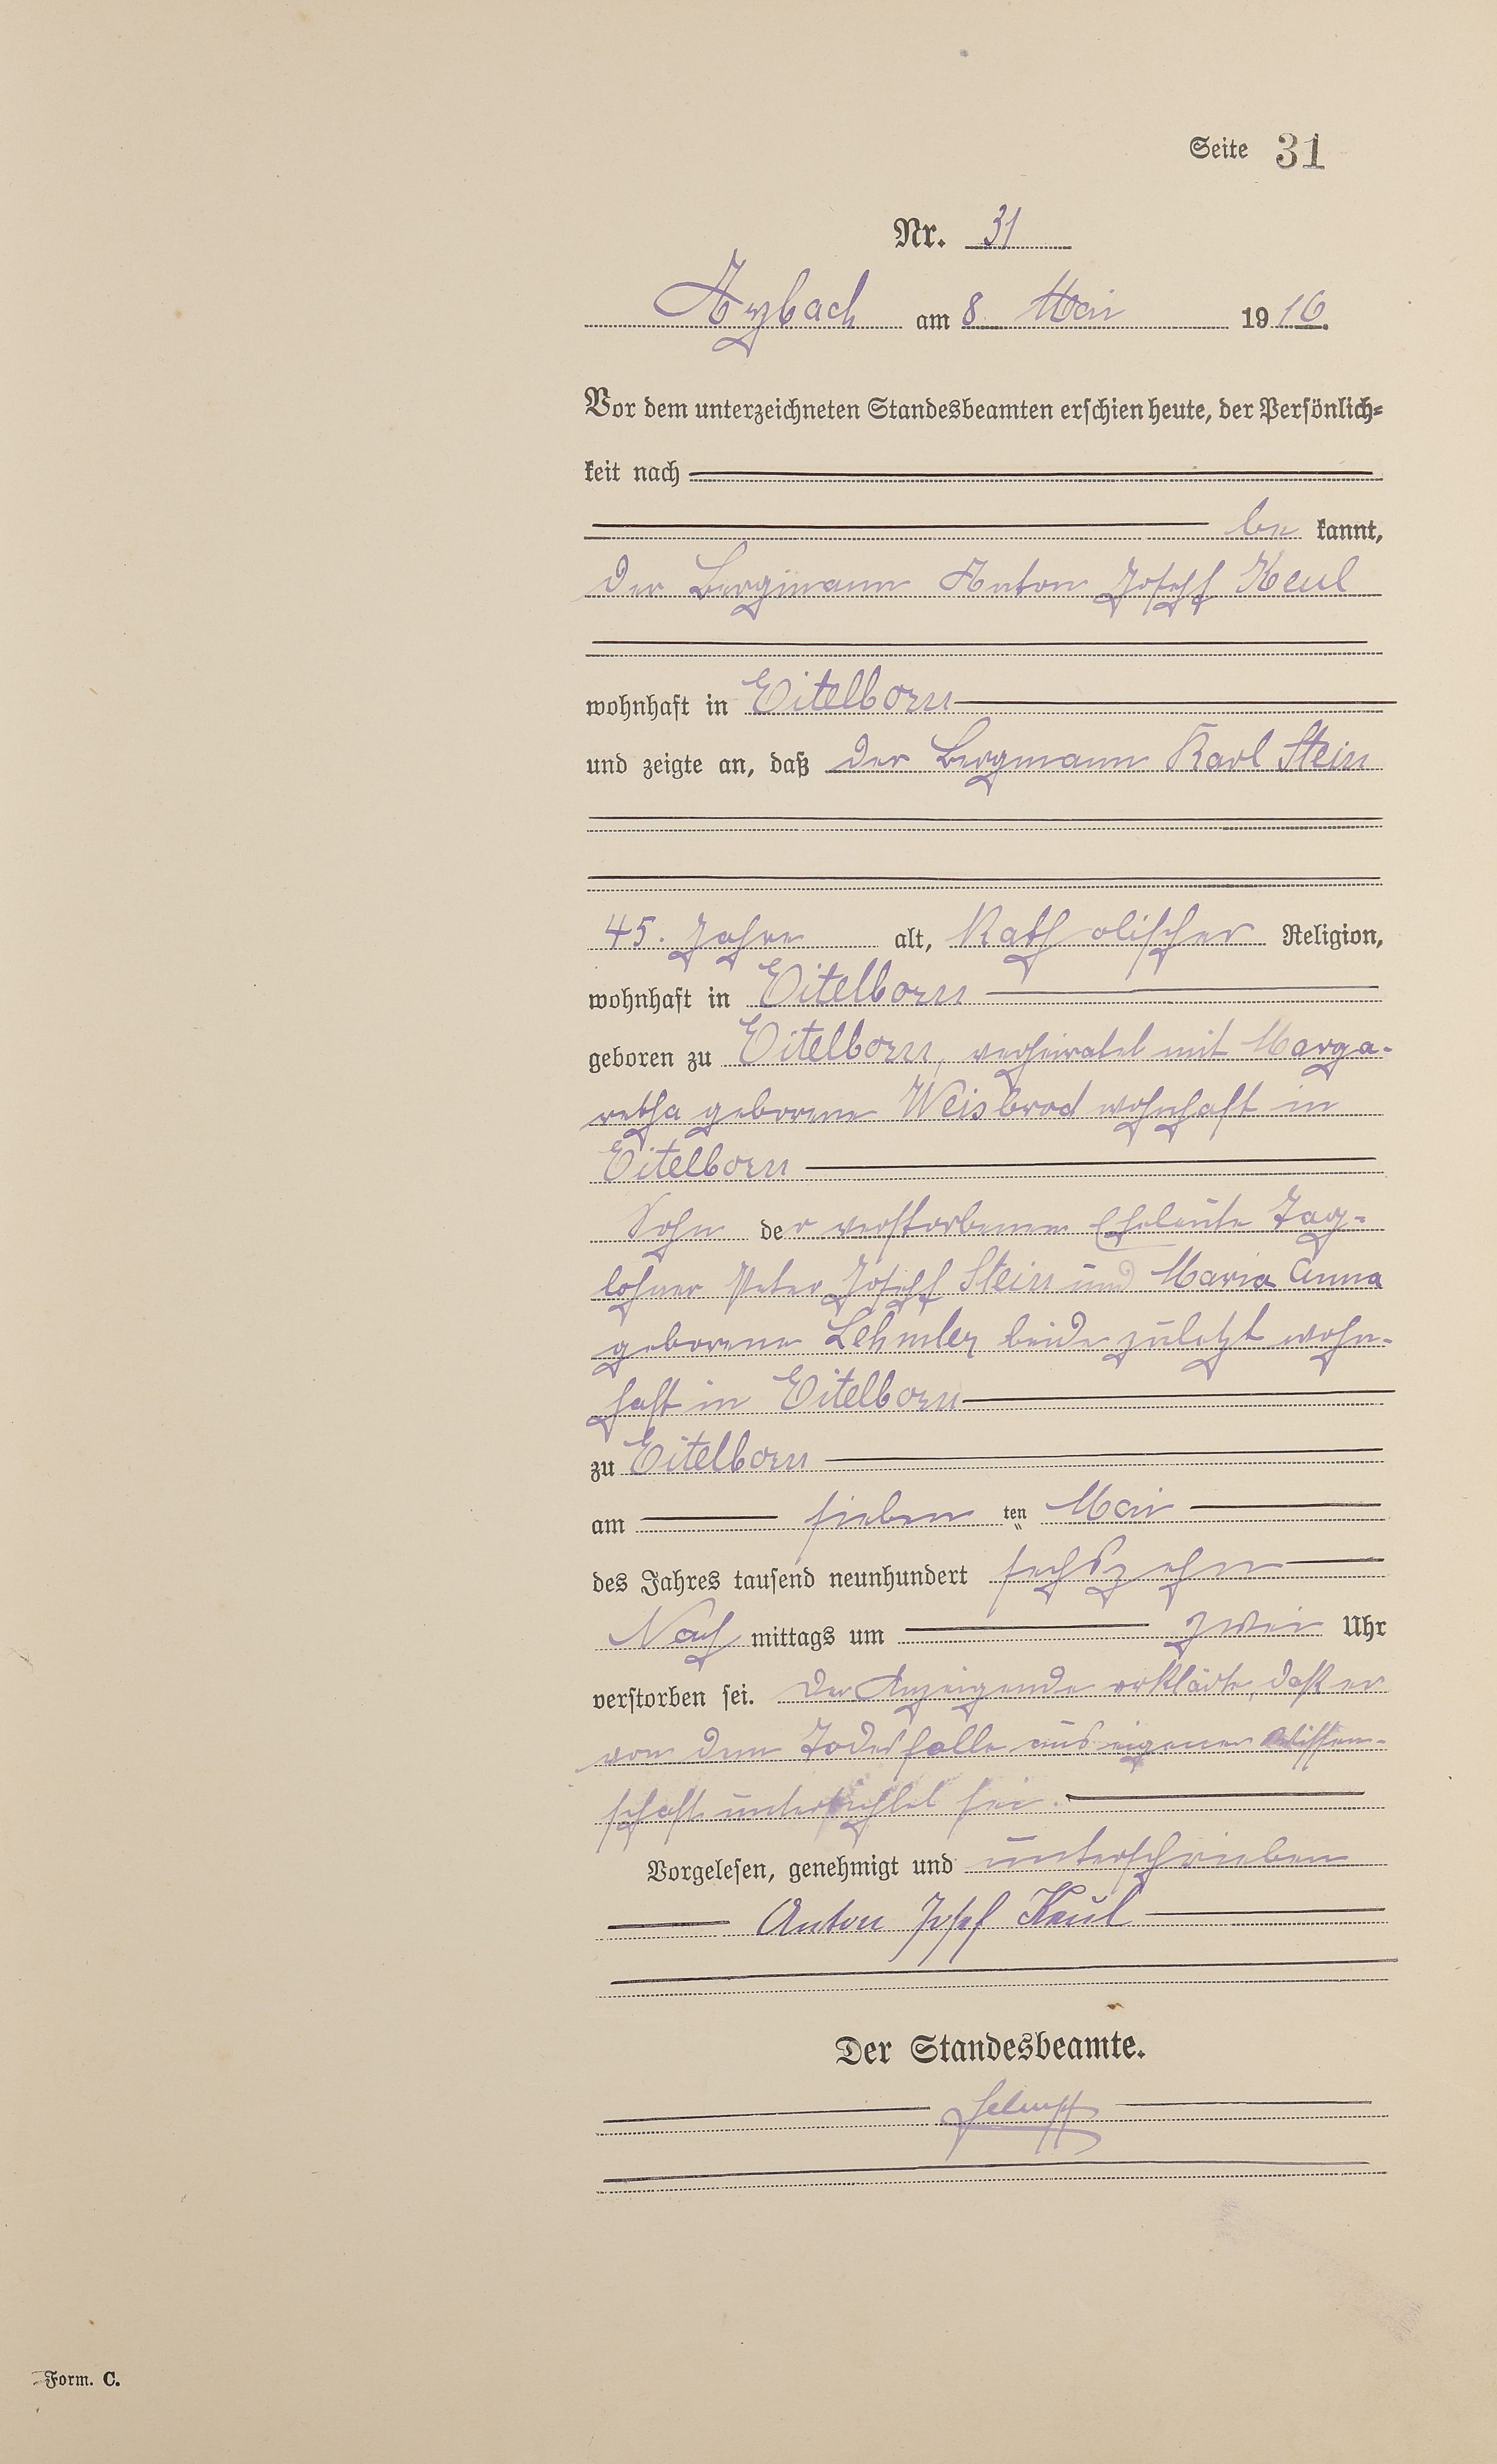 Seite 31
Nr. 31
Arzbach am 8. Mai 1916.
Vor dem unterzeichneten Standesbeamten erschien heute, der Persönlich-
keit nach
be kannt,
der Bergmann Anton Joseph Keul
wohnhaft in Eitelborn
und zeigte an, daß der Bergmann Karl Stein
45. Jahre alt, Katholischer Religion,
wohnhaft in Eitelborn
geboren zu Eitelborn, verheiratet mit Marga-
retha geborene Weisbrod wohnhaft in
Eitelborn
Sohn der verstorbenen Eheleute Tag-
lohner Peter Joseph Stein und Maria Anna
geborene Lehmler beide zuletzt wohn-
haft in Eitelborn
zu Eitelborn
am sieben ten Mai
des Jahres tausend neunhundert sechszehn
Nach mittags um zwei Uhr
verstorben sei. Der Anzeigende erklärte, daß er
von dem Todesfalle aus eigener Wissen-
schaft unterrichtet sei.
Vorgelesen, genehmigt und unterschrieben
Anton Josef Keul
Der Standesbeamte.
Form. C.